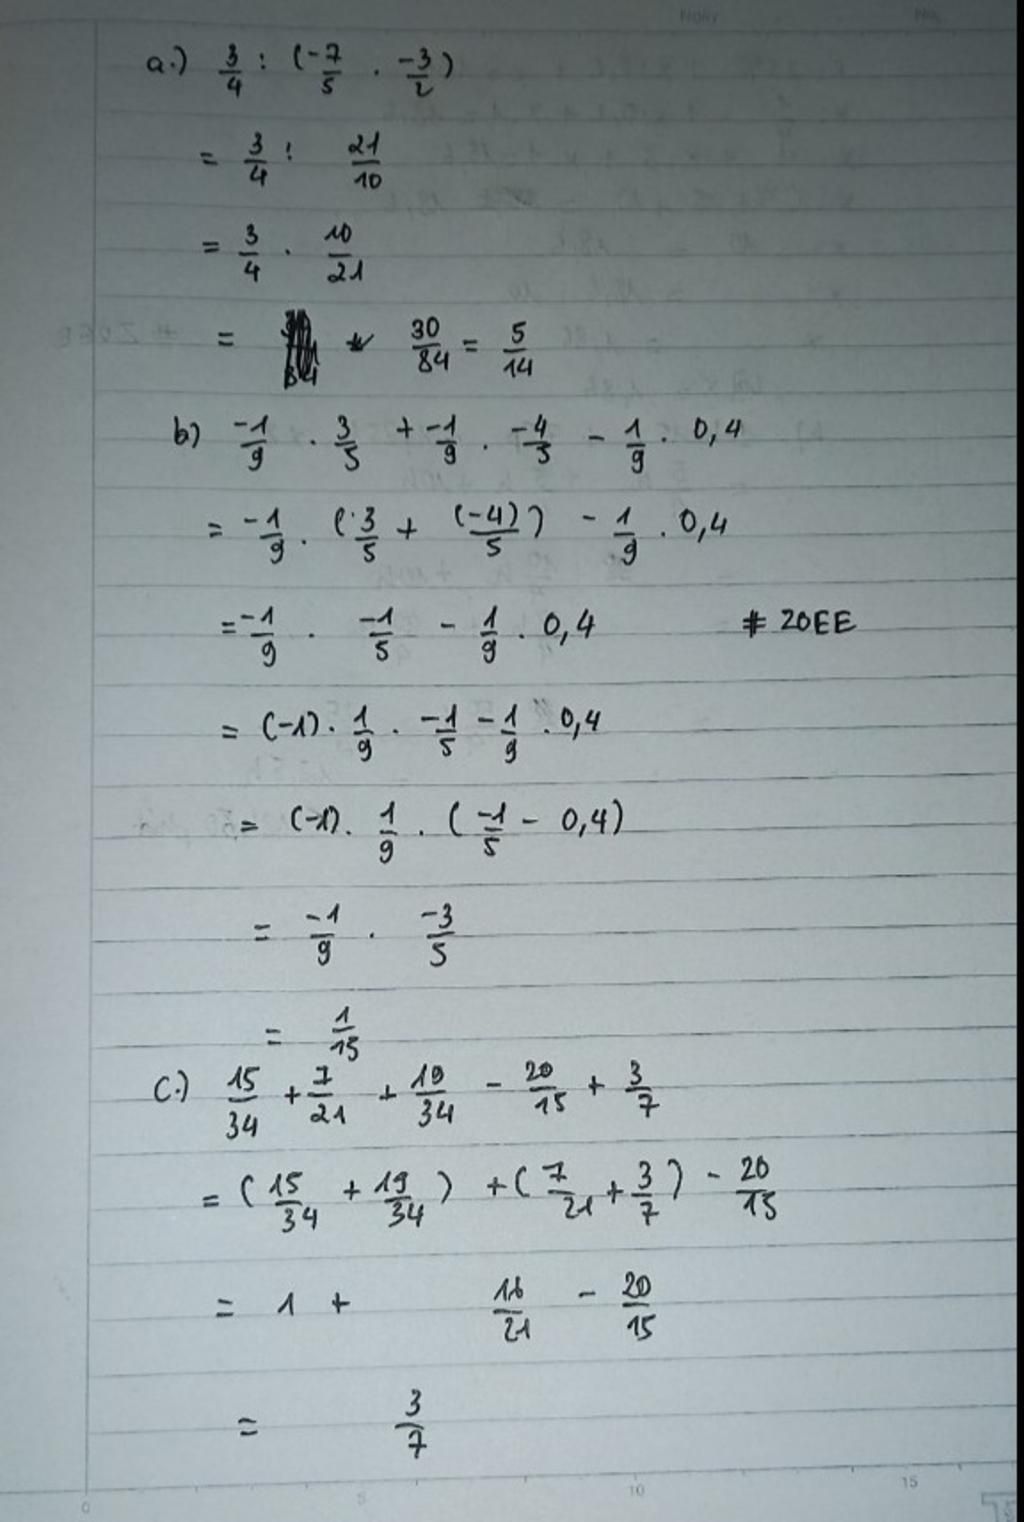 a.) 3/4 : (-7/5 . -3/2)
= 3/4 : 21/10
= 3/4 . 10/21
= 30/84 = 5/14
b) -1/9 . 3/5 + -1/9 . -4/5 - 1/9 . 0,4
= -1/9 . (3/5 + (-4)/5) - 1/9 . 0,4
= -1/9 . -1/5 - 1/9 . 0,4 # 20EE
= (-1) . 1/9 . -1/5 - 1/9 . 0,4
= (-1) . 1/9 . (-1/5 - 0,4)
= -1/9 . -3/5
= 1/15
C.) 15/34 + 7/21 + 19/34 - 20/15 + 3/7
= (15/34 + 19/34) + (7/21 + 3/7) - 20/15
= 1 + 16/21 - 20/15
= 3/7
0 5 10 15